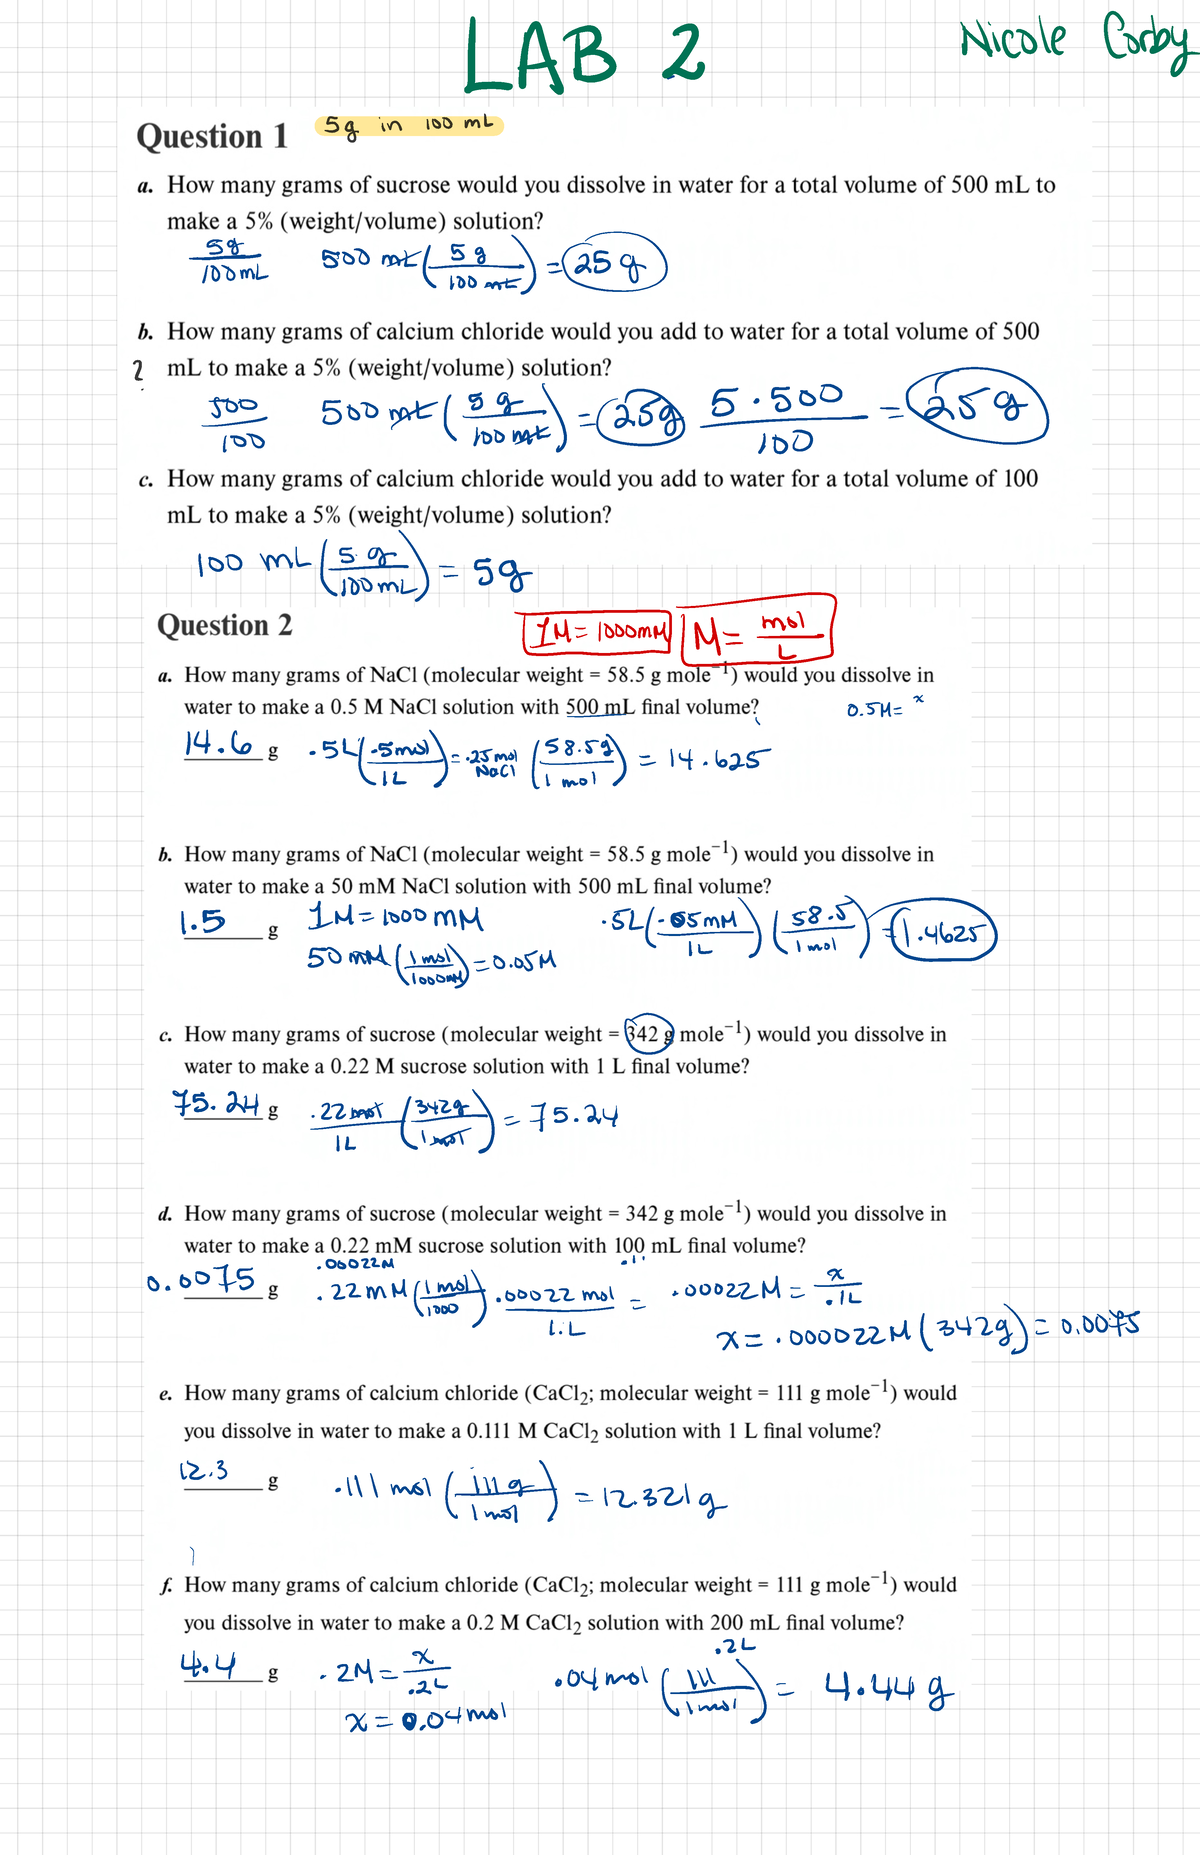 LAB 2
Nicole Corby
Question 1
5g in 100 mL
a. How many grams of sucrose would you dissolve in water for a total volume of 500 mL to
make a 5% (weight/volume) solution?
5g/100mL 500 mL (5 g/100 mL) = 25 g
b. How many grams of calcium chloride would you add to water for a total volume of 500
? mL to make a 5% (weight/volume) solution?
500/100 500 mL (5 g/100 mL) = 25g 5·500/100 = 25 g
c. How many grams of calcium chloride would you add to water for a total volume of 100
mL to make a 5% (weight/volume) solution?
100 mL (5 g/100 mL) = 5g
Question 2
1M = 1000mM M = mol/L
a. How many grams of NaCl (molecular weight = 58.5 g mole⁻¹) would you dissolve in
water to make a 0.5 M NaCl solution with 500 mL final volume?
0.5M = x
14.6 g .5L (.5mol/1L) = .25 mol NaCl (58.5g/1 mol) = 14.625
b. How many grams of NaCl (molecular weight = 58.5 g mole⁻¹) would you dissolve in
water to make a 50 mM NaCl solution with 500 mL final volume?
1.5 g 1M = 1000 mM .5L (.05mM/1L) (58.5/1 mol) = 1.4625
50 mM (1 mol/1000mM) = 0.05M
c. How many grams of sucrose (molecular weight = 342 g mole⁻¹) would you dissolve in
water to make a 0.22 M sucrose solution with 1 L final volume?
75.24 g .22 mol/1L (342g/1 mol) = 75.24
d. How many grams of sucrose (molecular weight = 342 g mole⁻¹) would you dissolve in
water to make a 0.22 mM sucrose solution with 100 mL final volume?
.00022M
0.0075 g .22 mM (1 mol/1000) .00022 mol/1.L = .00022M = x/.1L
x = .000022M (342g) = 0.0075
e. How many grams of calcium chloride (CaCl₂; molecular weight = 111 g mole⁻¹) would
you dissolve in water to make a 0.111 M CaCl₂ solution with 1 L final volume?
12.3 g .111 mol (111g/1 mol) = 12.321g
f. How many grams of calcium chloride (CaCl₂; molecular weight = 111 g mole⁻¹) would
you dissolve in water to make a 0.2 M CaCl₂ solution with 200 mL final volume?
.2L
4.4 g .2M = x/.2L .04 mol (111/1 mol) = 4.44 g
x = 0.04 mol